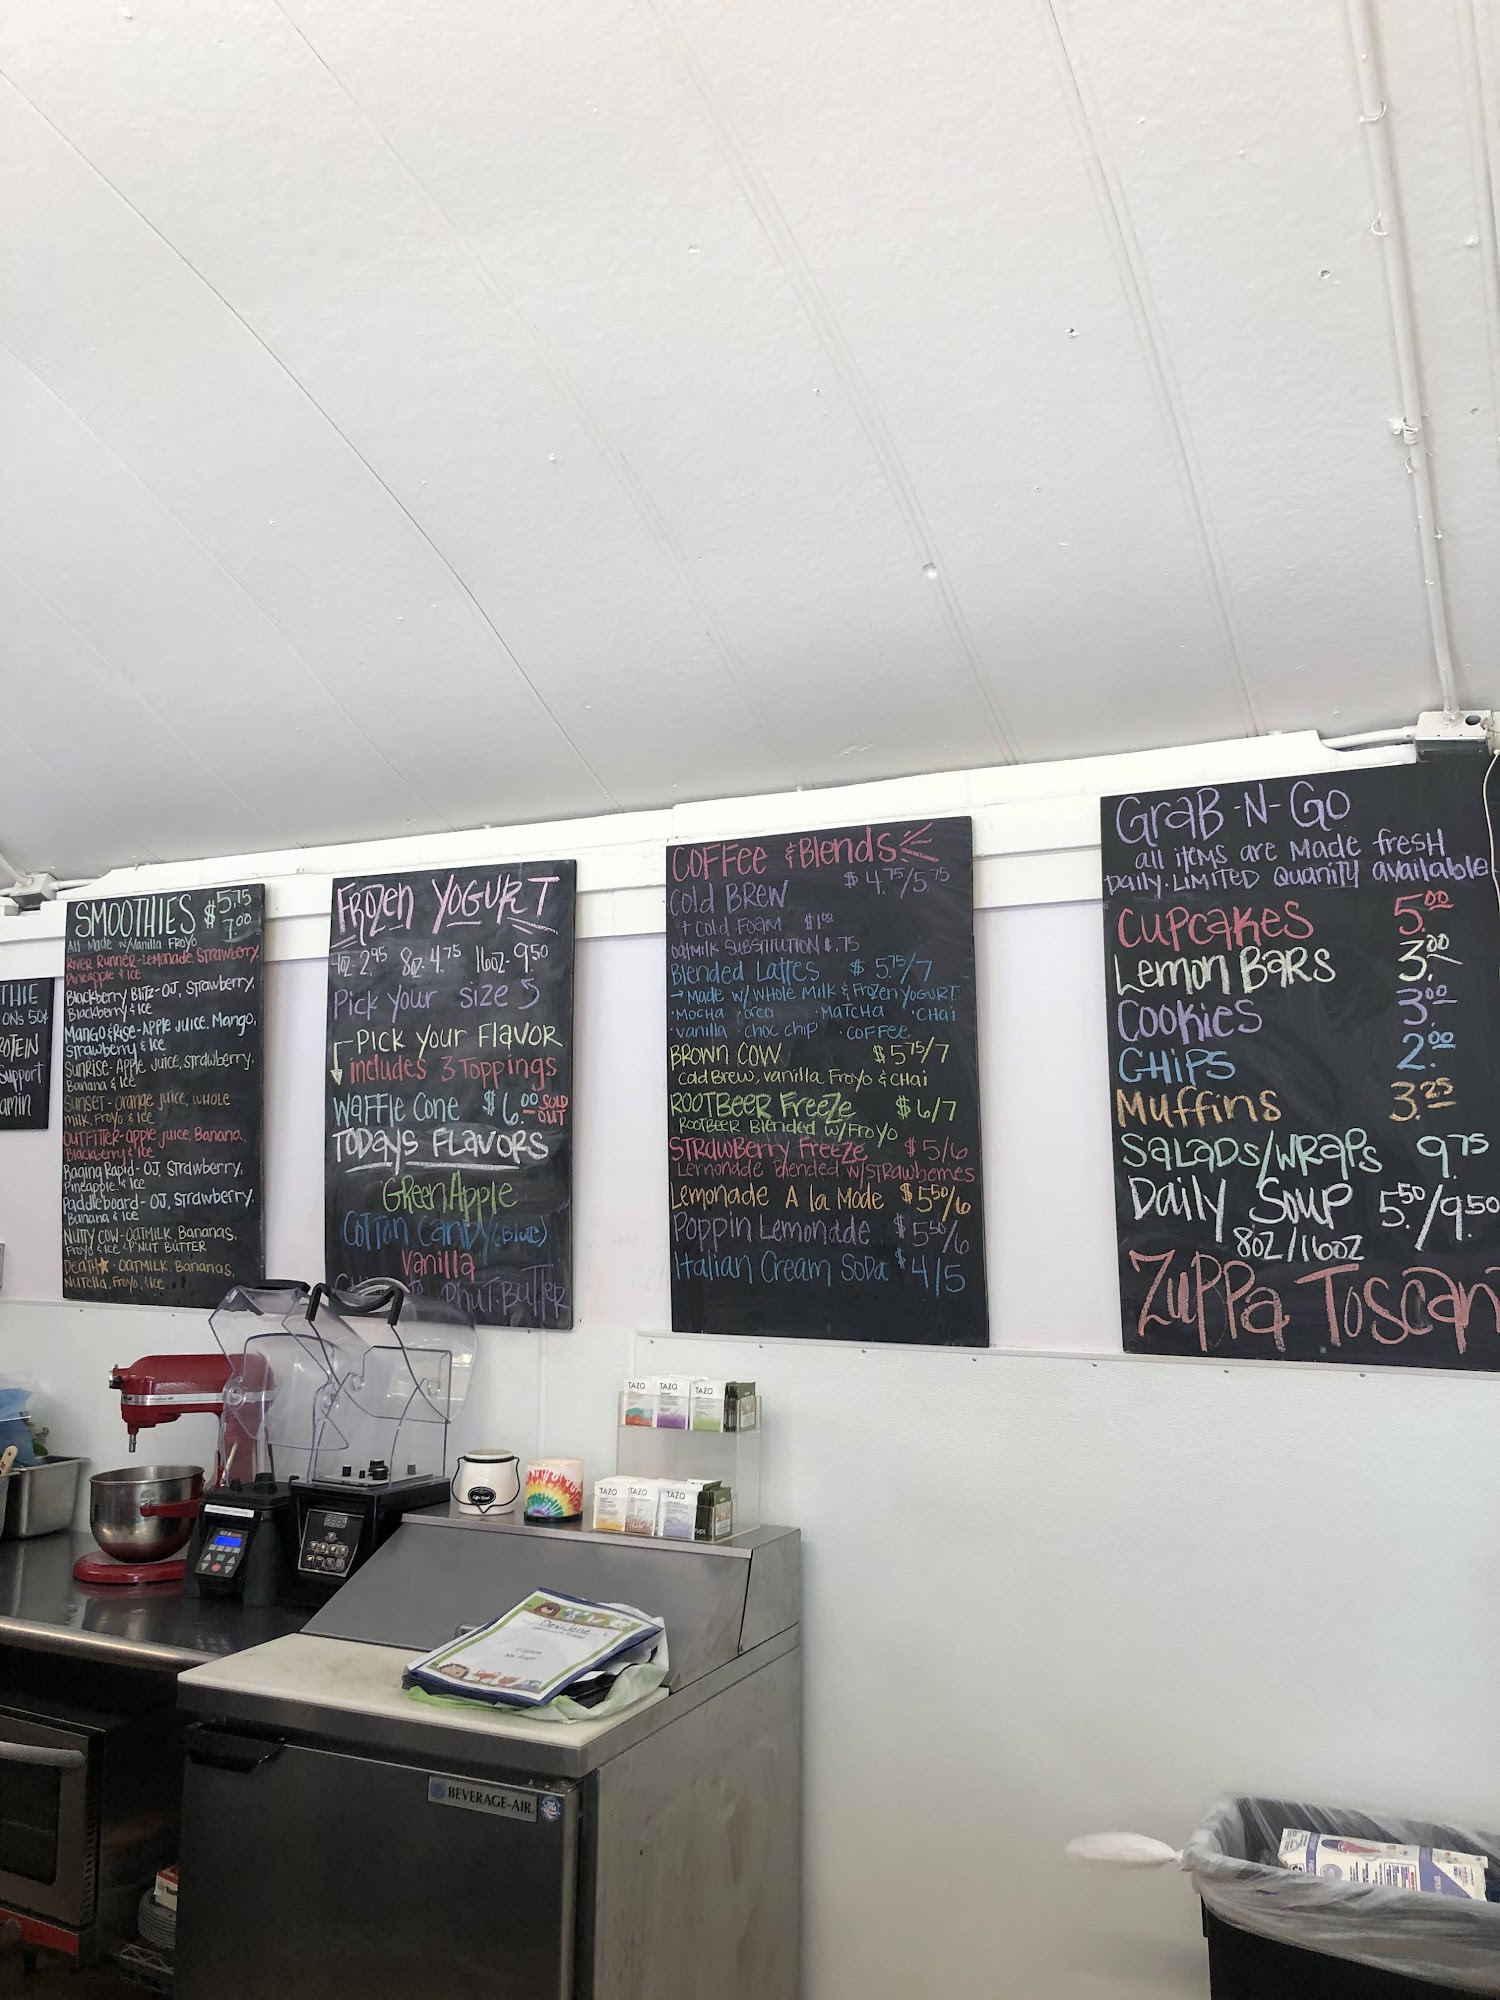 THIE
ONs 50¢
OTEIN
Support
amin
SMOOTHIES $5.75
7.00
All Made w/Vanilla Froyo
River Runner-Lemonade Strawberry,
Pineapple & Ice
Blackberry Blitz-OJ, Strawberry,
Blackberry & Ice
Mango & Rise-Apple Juice, Mango,
Strawberry & Ice
Sunrise-Apple Juice, Strawberry,
Banana & Ice
Sunset-Orange Juice, Whole
Milk, Froyo & Ice
Outfitter-Apple Juice, Banana,
Blackberry & Ice
Raging Rapid-OJ, Strawberry,
Pineapple & Ice
Paddleboard-OJ, Strawberry,
Banana & Ice
Nutty Cow-Oatmilk, Bananas,
Froyo & Ice & P'Nut Butter
Death★-Oatmilk, Bananas,
Nutella, Froyo, & Ice
Frozen Yogurt
4oz-2.95 8oz-4.75 16oz-9.50
Pick your size
Pick your Flavor
includes 3 Toppings
Waffle Cone $6.00 SOLD
OUT
Todays Flavors
Green Apple
Cotton Candy (Blue)
Vanilla
Pnut-Butter
Coffee & Blends
Cold Brew $4.75/5.75
+ Cold Foam $1.00
Oatmilk Substitution $.75
Blended Lattes $5.75/7
→Made w/Whole Milk & Frozen Yogurt
·Mocha ·oreo ·Matcha ·Chai
·vanilla ·choc chip ·Coffee
Brown Cow $5.75/7
Cold Brew, Vanilla Froyo & Chai
Rootbeer Freeze $6/7
Rootbeer Blended w/Froyo
Strawberry Freeze $5/6
Lemonade Blended w/Strawberries
Lemonade A la Mode $5.50/6
Poppin Lemonade $5.50/6
Italian Cream Soda $4/5
Grab-N-Go
all items are Made fresh
Daily. Limited Quanity available
Cupcakes 5.00
Lemon Bars 3.00
Cookies 3.00
Chips 2.00
Muffins 3.25
Salads/Wraps 9.75
Daily Soup 5.50/9.50
8oz/16oz
Zuppa Toscan
TAZO TAZO TAZO
TAZO TAZO TAZO
BEVERAGE-AIR